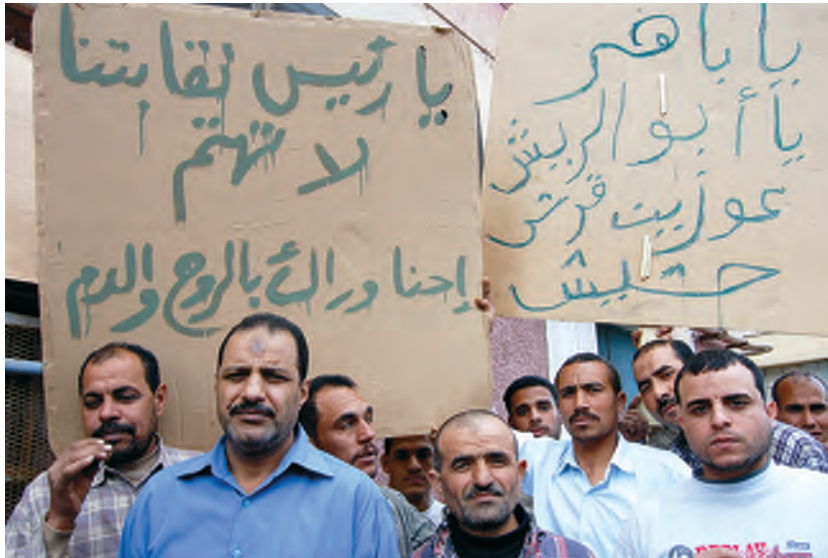 يا رئيس نقابتنا
لا تهتم
إحنا وراك بالروح والدم
يا باهر
يا أبو الريش
قرش
حشيش
REPLAY